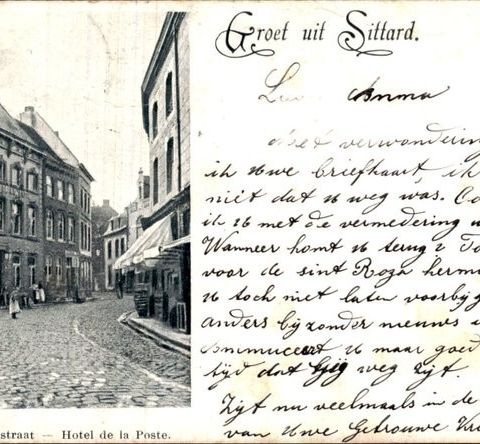 Groet uit Sittard.
Anma
Met verwondering
ik Uwe briefkaart, ik
niet dat U weg was.
ik U met de vermedering
Wanneer komt U terug?
voor de sint Roza
U toch niet laten voorbijg
anders bijzonder nieuws
U maar goed
tijd dat gij weg zijt.
Zijt nu veelmaals in de
van Uwe Getrouwe Vri
straat — Hotel de la Poste.